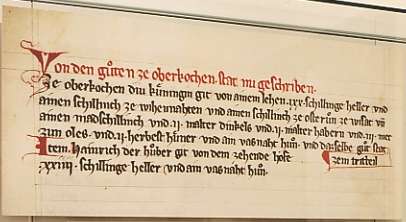 Von den guͦten ze oberkochen. stat nu geschriben.
Ze oberkochen diu kúnigin git von ainem lehen. xxx. schillinge heller vnd
ainen schillinch ze wihennahten vnd ainen schillinch ze ostrun ze wisat vn̄
ainen madschillinch vnd. ii. malter dinkels vnd. ii. malter habern vnd. iii.
zun oles. vnd. ii. herbest huͦnr vnd am vasnaht huͦn. vnd daz selbe guͦt stat
Item. hainrich der huͦber git von dem zehende hofe zem trabeil
xxiiii. schillinge heller vnd am vasnaht huͦn.